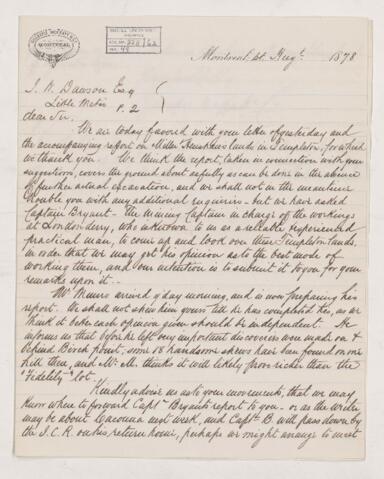 MONTREAL
Montreal 21 Augt. 1878
J. W. Dawson Esq
Little Metis P.Q
dear Sir.
We are today favored with your letter of yesterday and
the accompanying report on Miller & lands in Templeton, for which
we thank you. We think the report, taken in connection with your
suggestions, covers the ground about as fully as can be done in the absence
of further actual excavation, and we shall not in the meantime
trouble you with any additional enquiries - but we have asked
Captain Bryant - the Mining Captain in charge of the workings
at Londonderry, who is known to us as a reliable & experienced
practical man, to come up and look over these Templeton lands,
in order that we may get his opinion as to the best mode of
working them, and our intention is to submit it to you for your
remarks upon it -
Mr Munro arrived yday morning, and is now preparing his
report. We shall not shew him yours till he has completed his, as we
think it better each opinion given should be independent. He
informs us that before he left very important discoveries were made on &
behind Birch point, some 18 handsome shews have been found on one
hill there, and Mr M. thinks it will likely prove richer than the
"Fidelity" lot.
Kindly advise us as to your movements, that we may
know where to forward Captn Bryants report to you - or as the writer
may be about Cacouna next week, and Captn B. will pass down by
the I.C.R. on his return home, perhaps we might arrange to meet